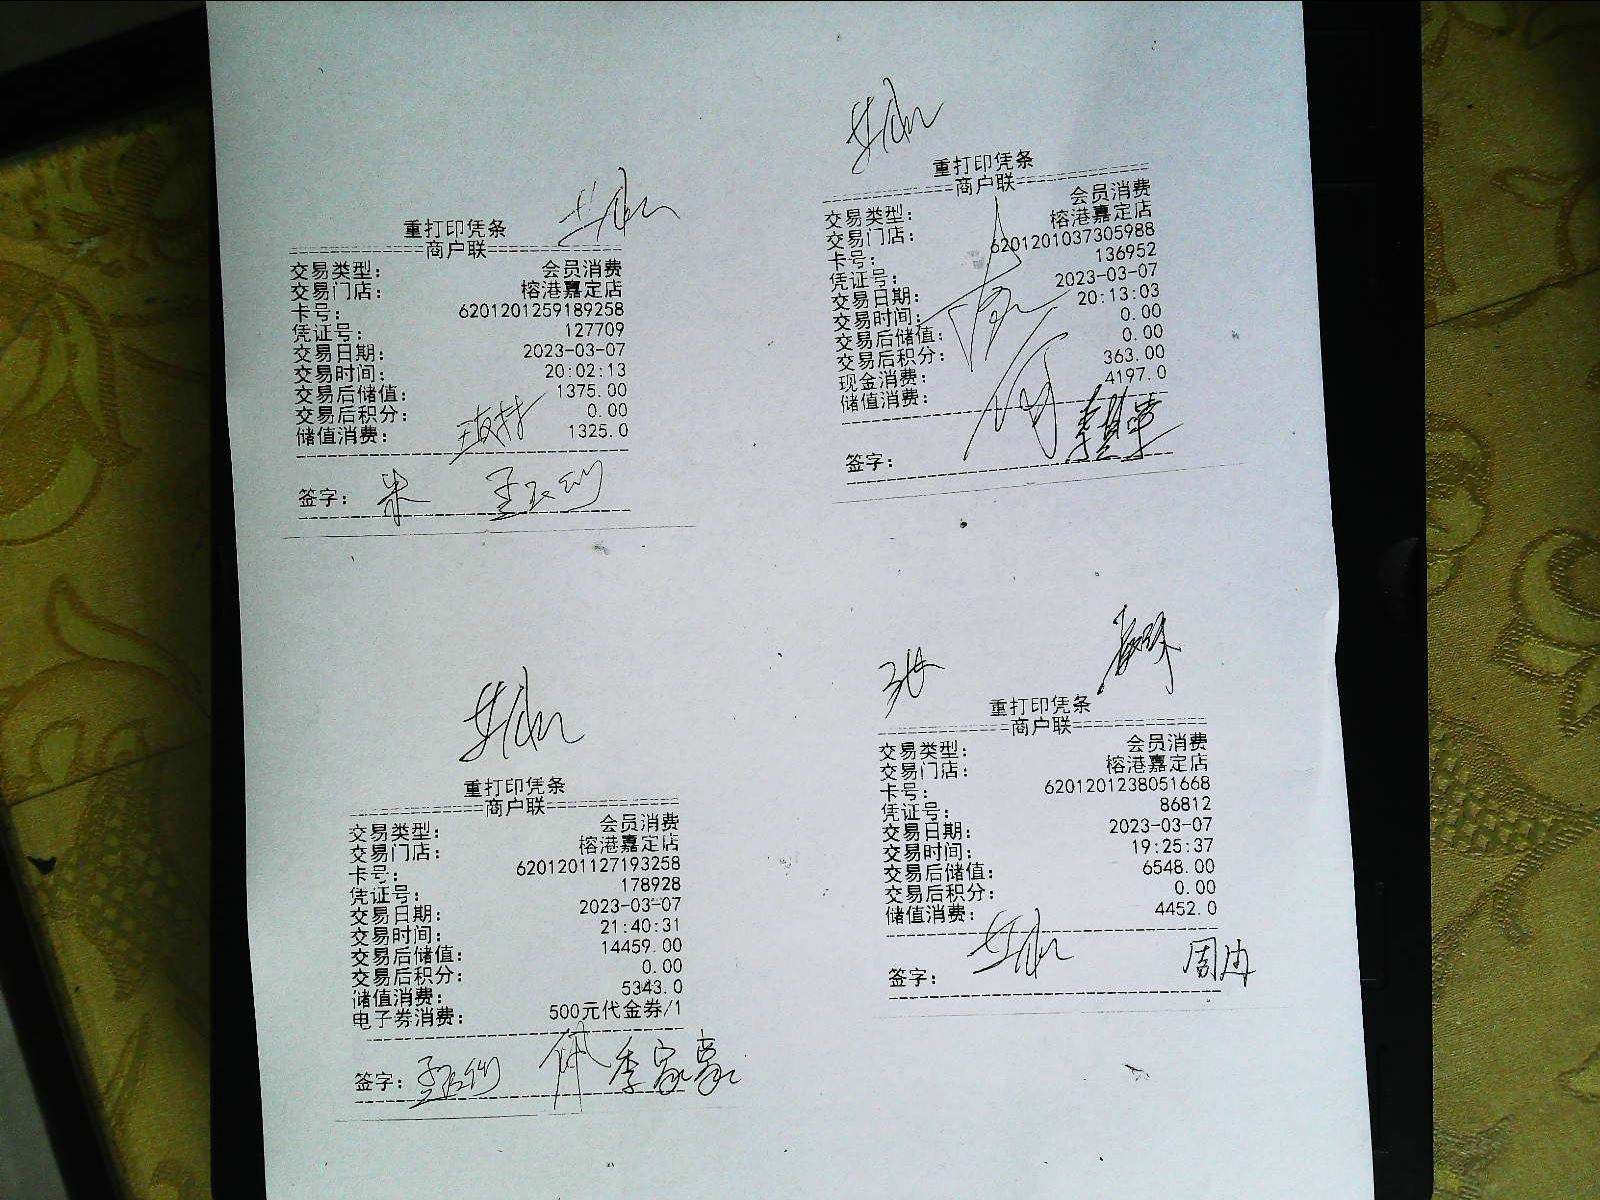 重打印凭条
==============商户联==============
交易类型: 会员消费
交易门店: 榕港嘉定店
卡号: 6201201259189258
凭证号: 127709
交易日期: 2023-03-07
交易时间: 20:02:13
交易后储值: 1375.00
交易后积分: 0.00
储值消费: 1325.0
签字: 朱
重打印凭条
==============商户联==============
交易类型: 会员消费
交易门店: 榕港嘉定店
卡号: 6201201037305988
凭证号: 136952
交易日期: 2023-03-07
交易时间: 20:13:03
交易后储值: 0.00
交易后积分: 0.00
现金消费: 363.00
储值消费: 4197.0
签字:
重打印凭条
==============商户联==============
交易类型: 会员消费
交易门店: 榕港嘉定店
卡号: 6201201127193258
凭证号: 178928
交易日期: 2023-03-07
交易时间: 21:40:31
交易后储值: 14459.00
交易后积分: 0.00
储值消费: 5343.0
电子券消费: 500元代金券/1
签字: 代 李家豪
张
重打印凭条
==============商户联==============
交易类型: 会员消费
交易门店: 榕港嘉定店
卡号: 6201201238051668
凭证号: 86812
交易日期: 2023-03-07
交易时间: 19:25:37
交易后储值: 6548.00
交易后积分: 0.00
储值消费: 4452.0
签字: 周冉